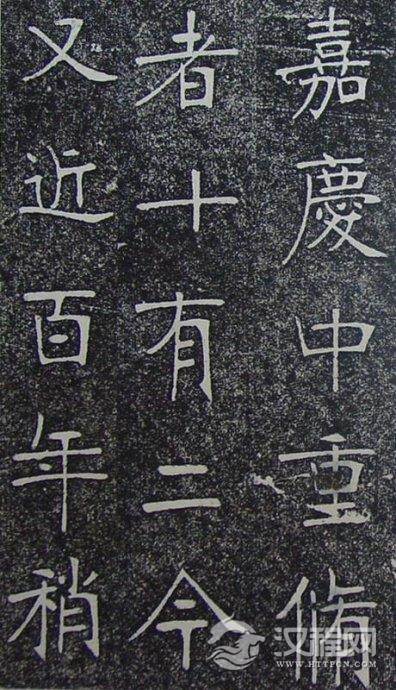 嘉慶中重脩
者十有二今
又近百年稍
汉程网
WWW.HTTPCN.COM